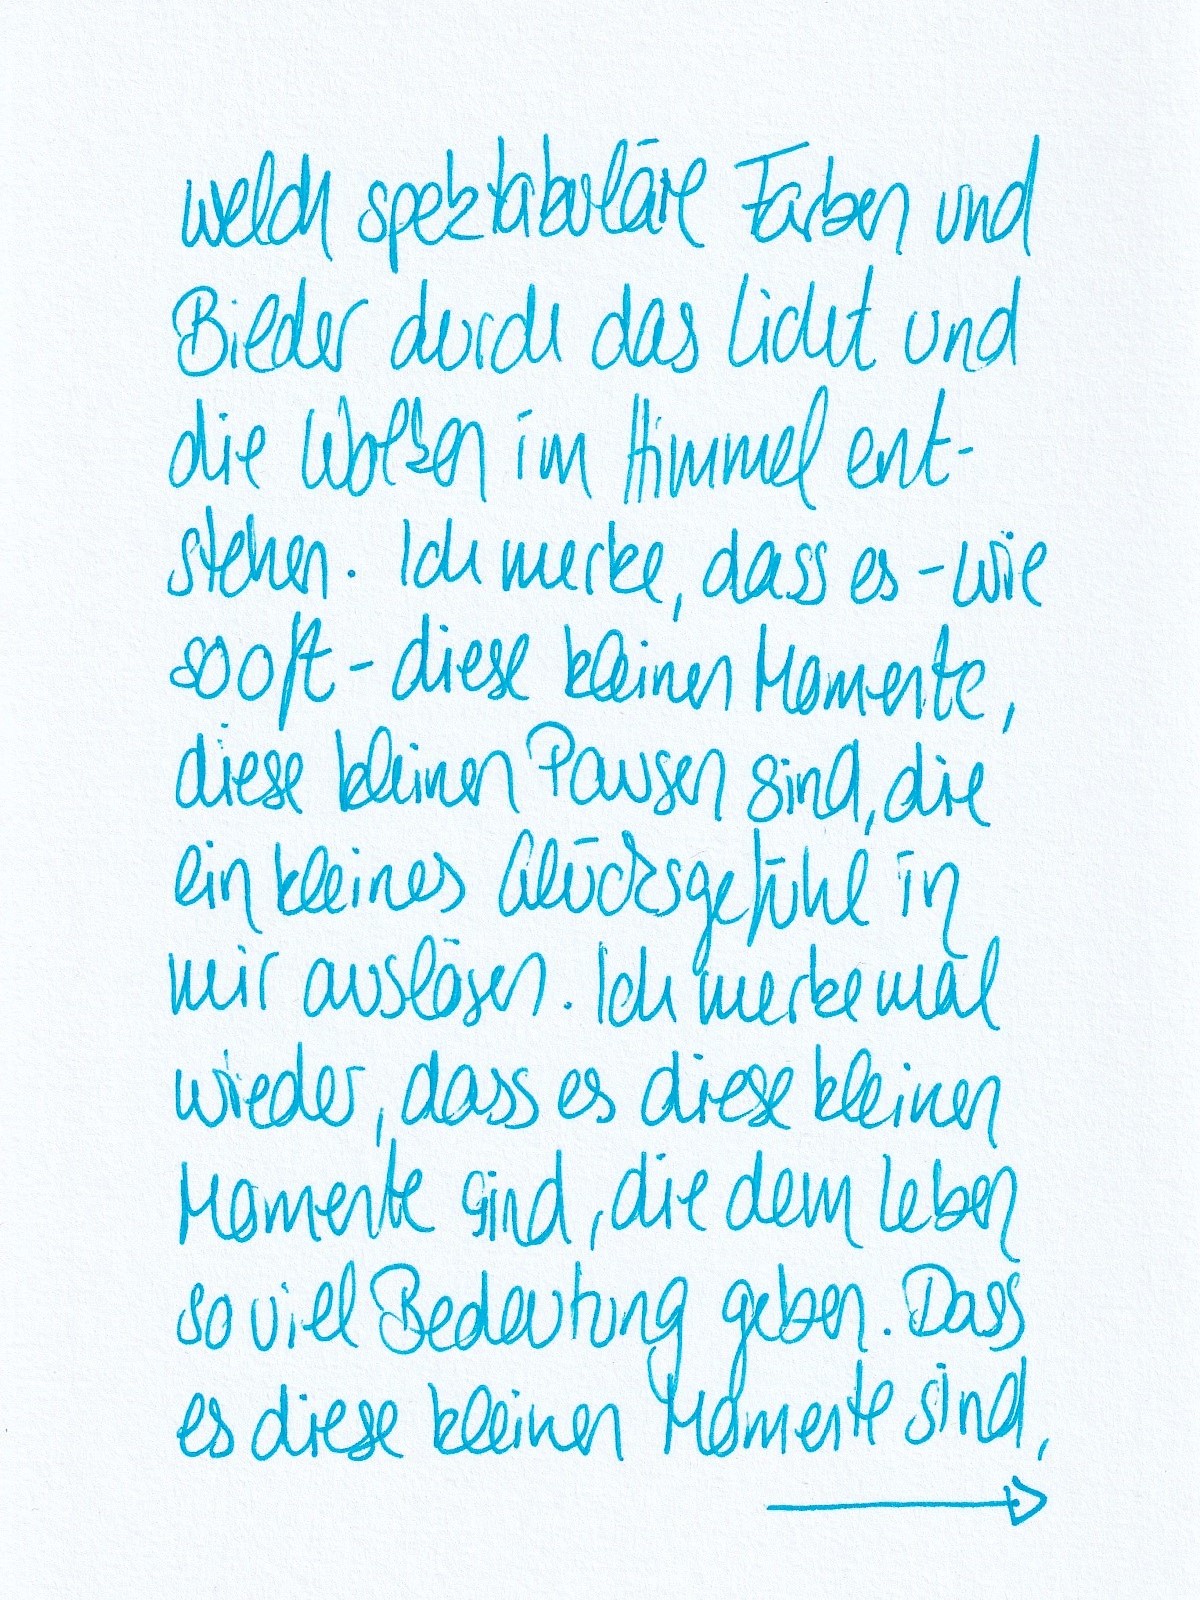 welch spektakuläre Farben und
Bilder durch das Licht und
die Wolken im Himmel ent-
stehen. Ich merke, dass es - wie
so oft - diese kleinen Momente,
diese kleinen Pausen sind, die
ein kleines Glücksgefühl in
mir auslösen. Ich merke mal
wieder, dass es diese kleinen
Momente sind, die dem Leben
so viel Bedeutung geben. Dass
es diese kleinen Momente sind,